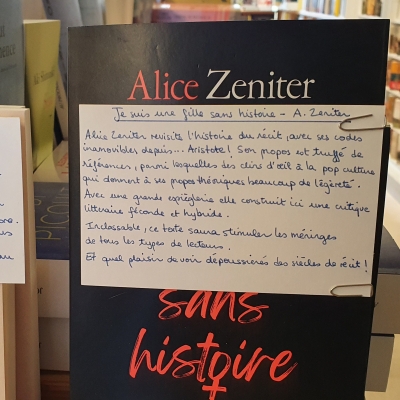 Alice Zeniter
Je suis une fille sans histoire - A. Zeniter
Alice Zeniter revisite l'histoire du récit, avec ses codes
inamovibles depuis... Aristote! Son propos est truffé de
références, parmi lesquelles des clins d'œil à la pop culture
qui donnent à ses propos théoriques beaucoup de légèreté.
Avec une grande espièglerie elle construit ici une critique
littéraire féconde et hybride.
Inclassable, ce texte saura stimuler les méninges
de tous les types de lecteurs.
Et quel plaisir de voir dépoussiérés des siècles de récit!
sans
histoire